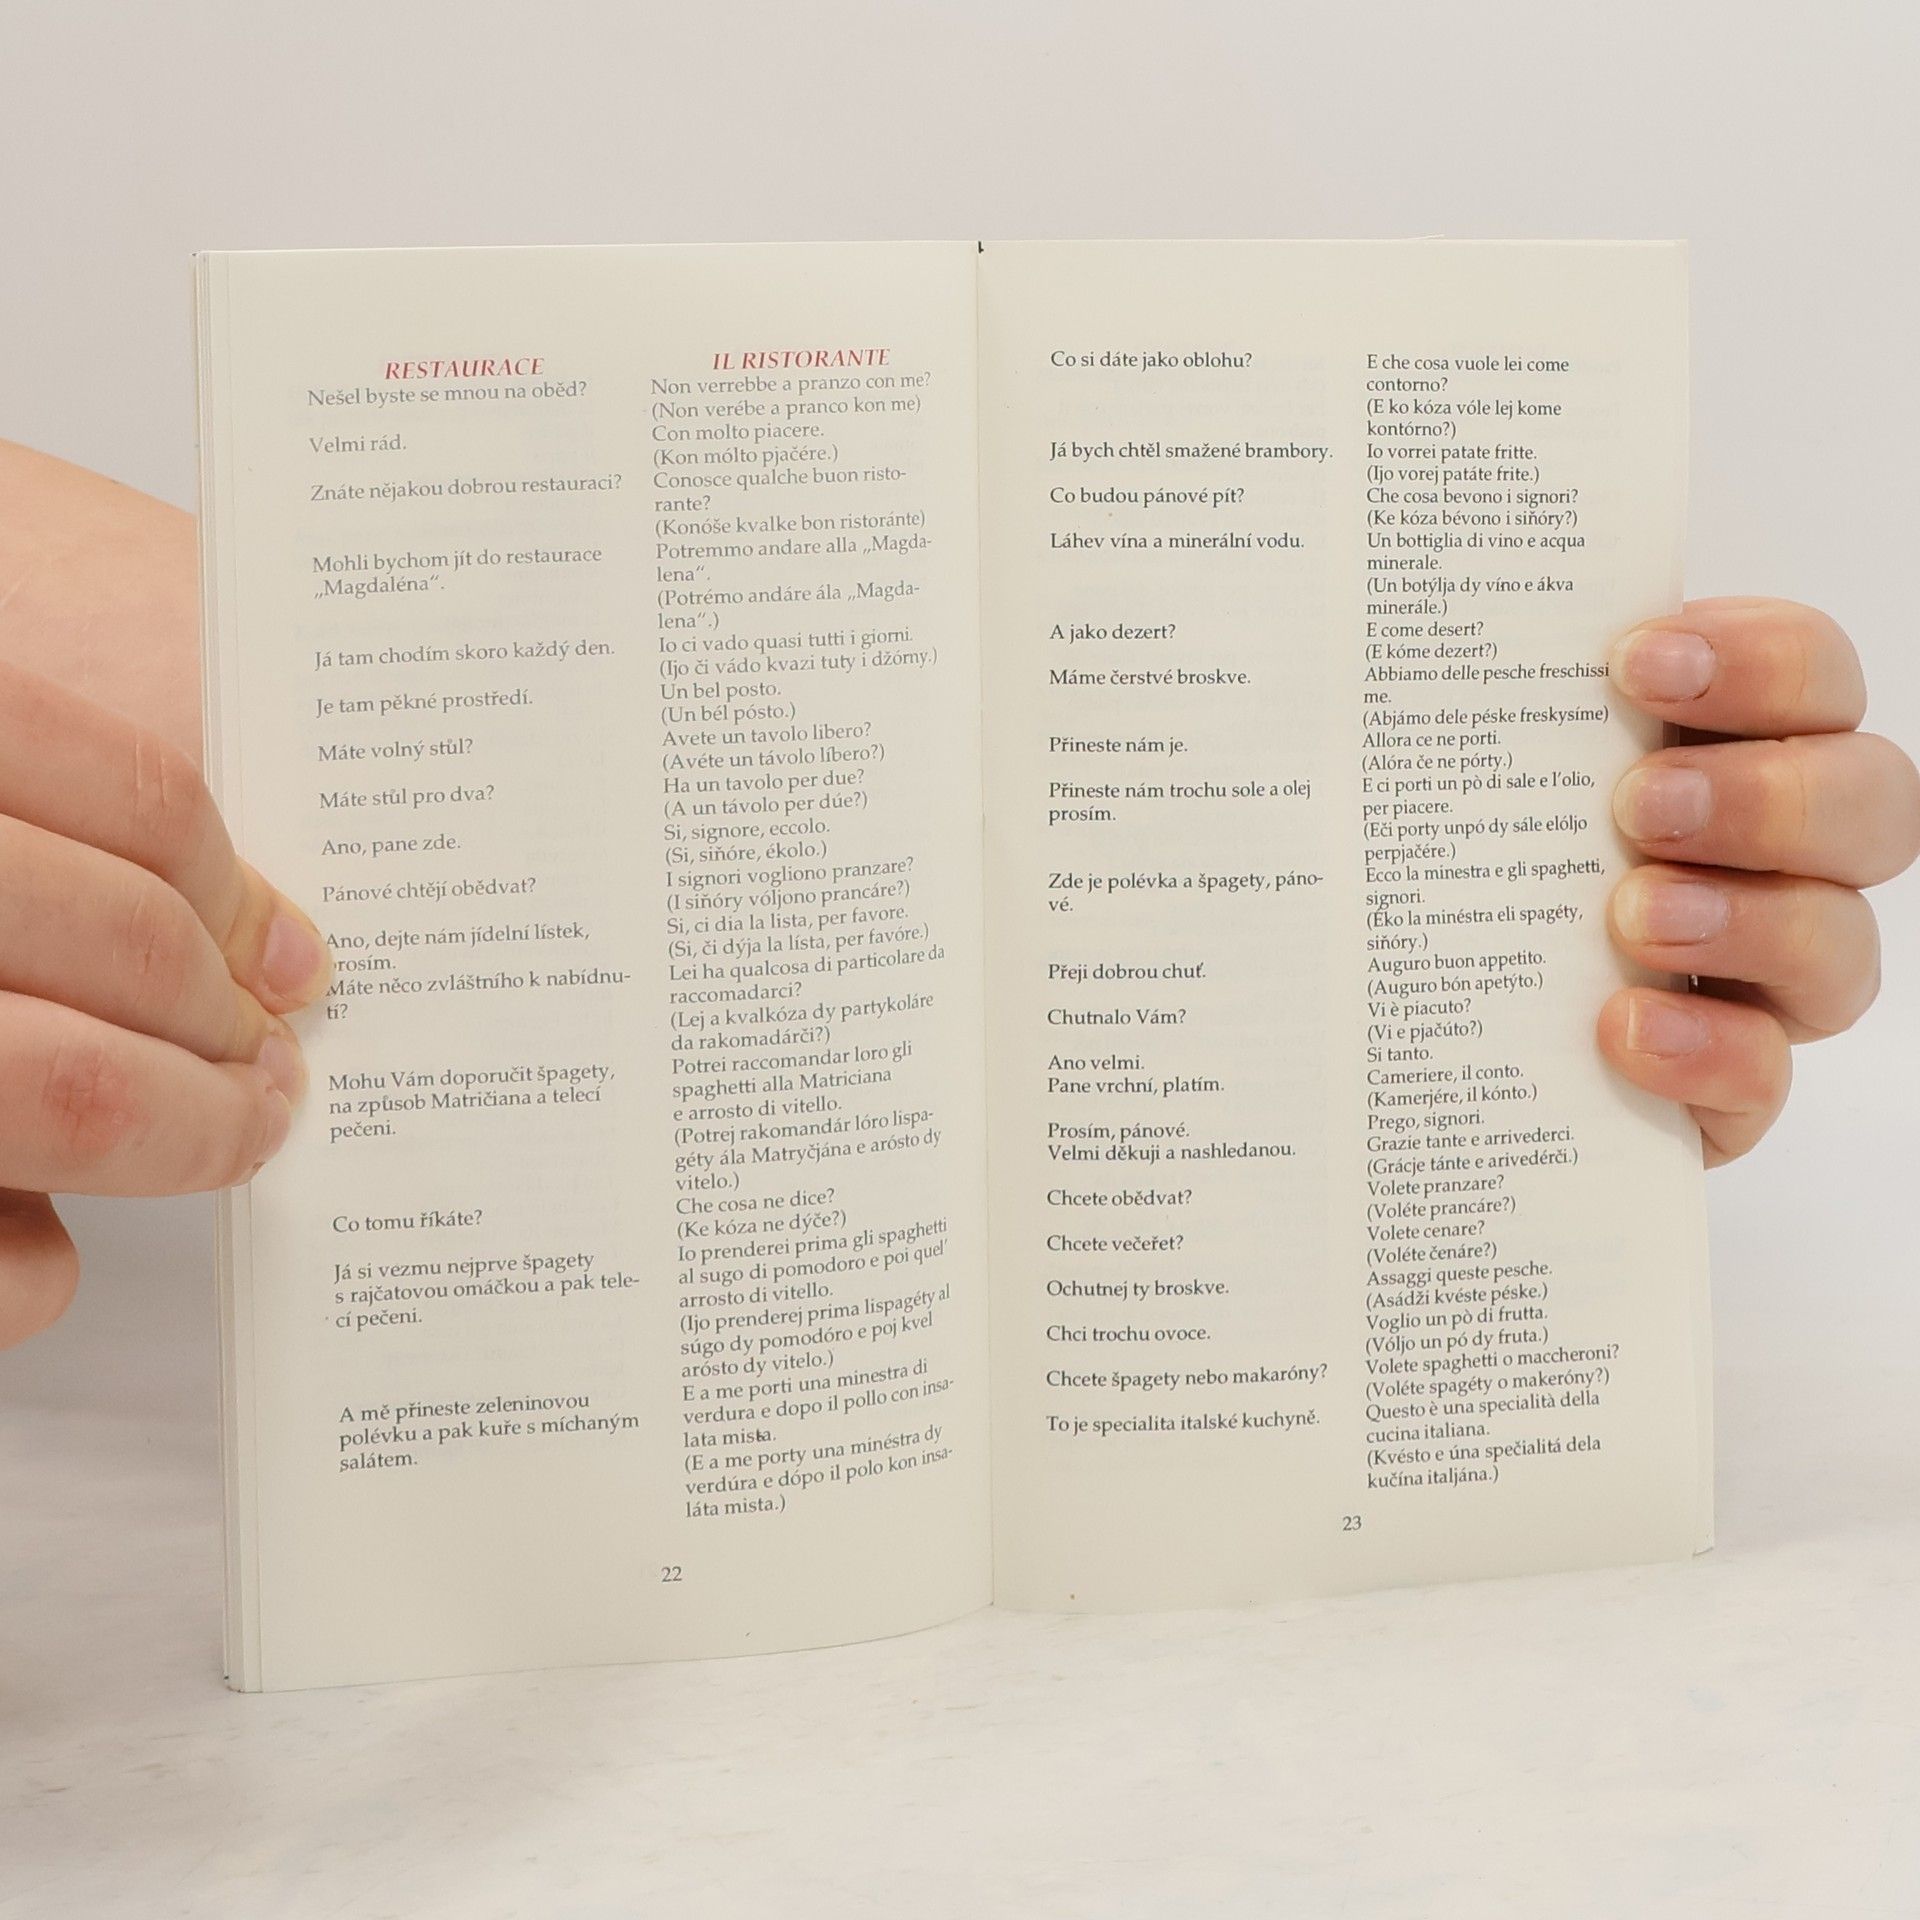 RESTAURACE
Nešel byste se mnou na oběd?
Velmi rád.
Znáte nějakou dobrou restauraci?
Mohli bychom jít do restaurace
„Magdaléna“.
Já tam chodím skoro každý den.
Je tam pěkné prostředí.
Máte volný stůl?
Máte stůl pro dva?
Ano, pane zde.
Pánové chtějí obědvat?
Ano, dejte nám jídelní lístek,
rosím.
Máte něco zvláštního k nabídnu-
tí?
Mohu Vám doporučit špagety,
na způsob Matričiana a telecí
pečeni.
Co tomu říkáte?
Já si vezmu nejprve špagety
s rajčatovou omáčkou a pak tele-
cí pečeni.
A mě přineste zeleninovou
polévku a pak kuře s míchaným
salátem.
IL RISTORANTE
Non verrebbe a pranzo con me?
(Non verébe a pranco kon me)
Con molto piacere.
(Kon mólto pjačére.)
Conosce qualche buon risto-
rante?
(Konóše kvalke bon ristoránte)
Potremmo andare alla „Magda-
lena“.
(Potrémo andáre ála „Magda-
lena“.)
Io ci vado quasi tutti i giorni.
(Ijo či vádo kvazi tuty i džórny.)
Un bel posto.
(Un bél pósto.)
Avete un tavolo libero?
(Avéte un távolo líbero?)
Ha un tavolo per due?
(A un távolo per dúe?)
Si, signore, eccolo.
(Si, siňóre, ékolo.)
I signori vogliono pranzare?
(I siňóry vóljono prancáre?)
Si, ci dia la lista, per favore.
(Si, či dýja la lísta, per favóre.)
Lei ha qualcosa di particolare da
raccomadarci?
(Lej a kvalkóza dy partykoláre
da rakomadárči?)
Potrei raccomandar loro gli
spaghetti alla Matriciana
e arrosto di vitello.
(Potrej rakomandár lóro lispa-
géty ála Matryčjána e arósto dy
vitelo.)
Che cosa ne dice?
(Ke kóza ne dýče?)
Io prenderei prima gli spaghetti
al sugo di pomodoro e poi quel’
arrosto di vitello.
(Ijo prenderej prima lispagéty al
súgo dy pomodóro e poj kvel
arósto dy vitelo.)
E a me porti una minestra di
verdura e dopo il pollo con insa-
lata mista.
(E a me porty una minéstra dy
verdúra e dópo il polo kon insa-
láta mista.)
22
Co si dáte jako oblohu?
Já bych chtěl smažené brambory.
Co budou pánové pít?
Láhev vína a minerální vodu.
A jako dezert?
Máme čerstvé broskve.
Přineste nám je.
Přineste nám trochu sole a olej
prosím.
Zde je polévka a špagety, páno-
vé.
Přeji dobrou chuť.
Chutnalo Vám?
Ano velmi.
Pane vrchní, platím.
Prosím, pánové.
Velmi děkuji a nashledanou.
Chcete obědvat?
Chcete večeřet?
Ochutnej ty broskve.
Chci trochu ovoce.
Chcete špagety nebo makaróny?
To je specialita italské kuchyně.
E che cosa vuole lei come
contorno?
(E ko kóza vóle lej kome
kontórno?)
Io vorrei patate fritte.
(Ijo vorej patáte frite.)
Che cosa bevono i signori?
(Ke kóza bévono i siňóry?)
Un bottiglia di vino e acqua
minerale.
(Un botýlja dy víno e ákva
minerále.)
E come desert?
(E kóme dezert?)
Abbiamo delle pesche freschissi
me.
(Abjámo dele péske freskysíme)
Allora ce ne porti.
(Alóra če ne pórty.)
E ci porti un pò di sale e l’olio,
per piacere.
(Eči porty unpó dy sále elóljo
perpjačére.)
Ecco la minestra e gli spaghetti,
signori.
(Éko la minéstra eli spagéty,
siňóry.)
Auguro buon appetito.
(Auguro bón apetýto.)
Vi è piacuto?
(Vi e pjačúto?)
Si tanto.
Cameriere, il conto.
(Kamerjére, il kónto.)
Prego, signori.
Grazie tante e arrivederci.
(Grácje tánte e arivedérči.)
Volete pranzare?
(Voléte prancáre?)
Volete cenare?
(Voléte čenáre?)
Assaggi queste pesche.
(Asádži kvéste péske.)
Voglio un pò di frutta.
(Vóljo un pó dy fruta.)
Volete spaghetti o maccheroni?
(Voléte spagéty o makeróny?)
Questo è una specialità della
cucina italiana.
(Kvésto e úna spečialitá dela
kučína italjána.)
23